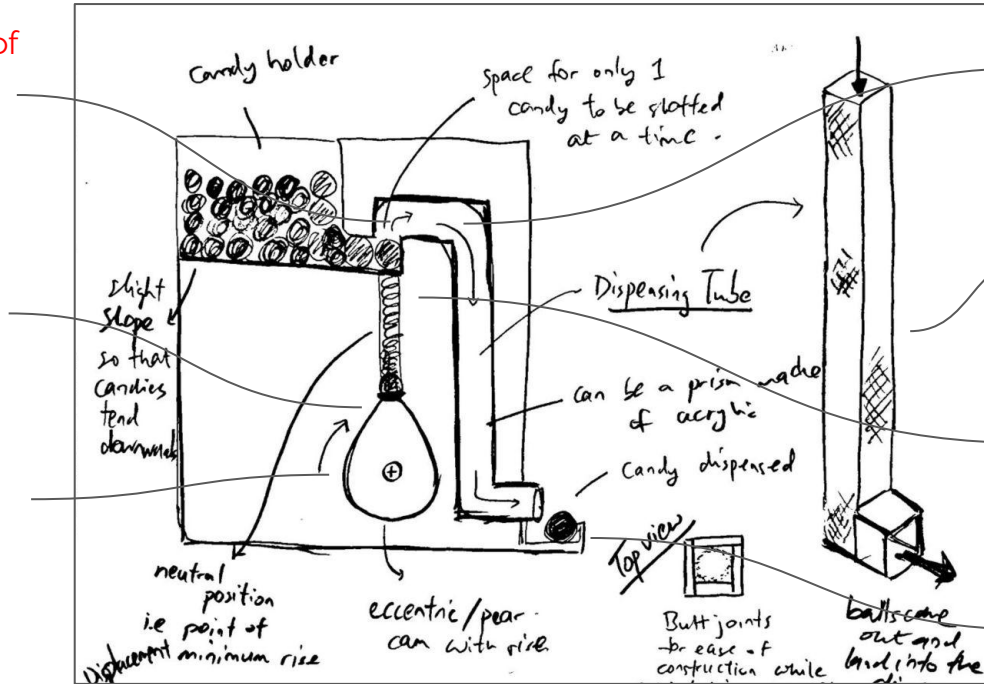 of
candy holder
space for only 1
candy to be slotted
at a time.
slight
slope
so that
candies
tend
downwards
Dispensing Tube
can be a prism made
of acrylic
candy dispensed
Top view
neutral
position
i.e point of
Displacement minimum rise
eccentric/pear
cam with rise
Butt joints
for ease of
construction while
balls come
out and
land into the